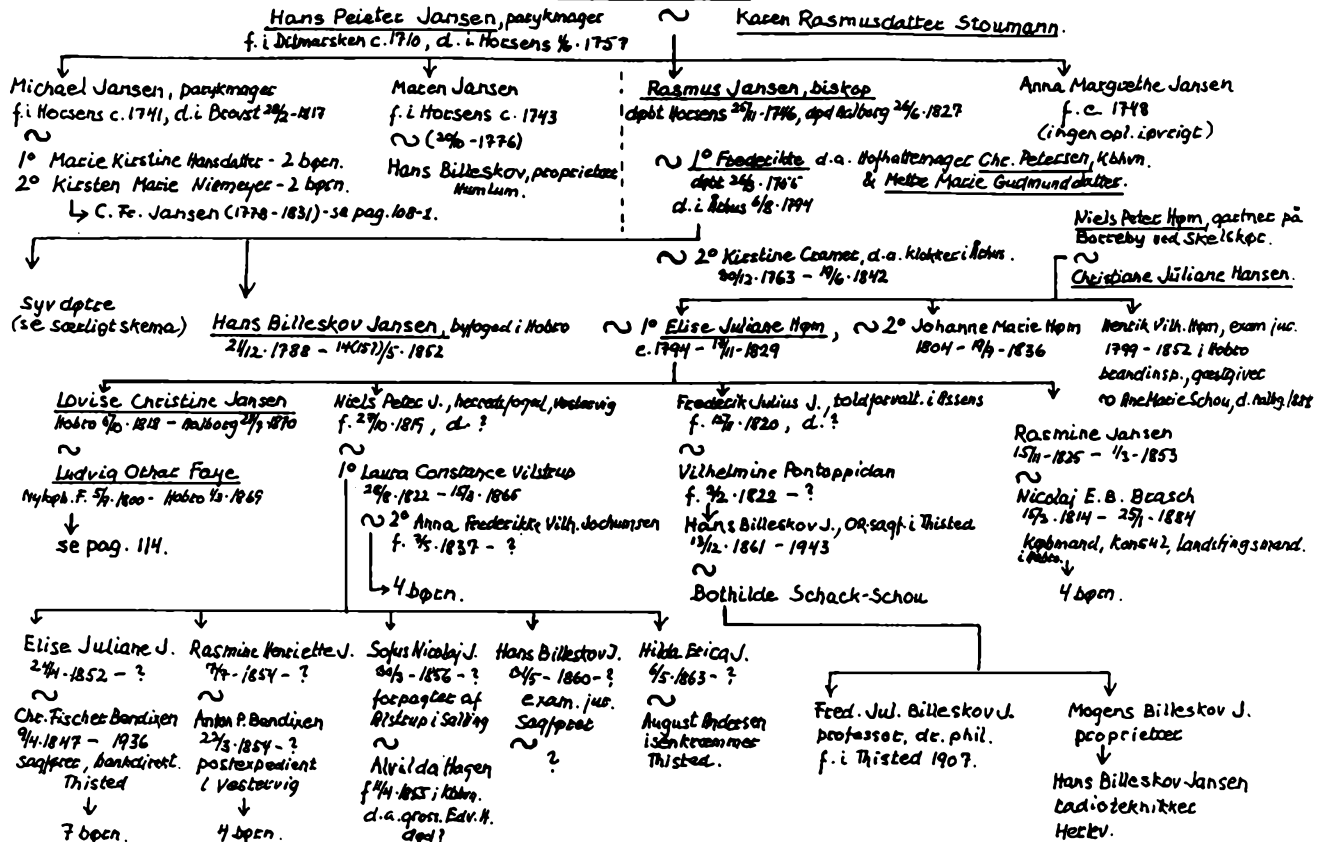 Hans Peieter Jansen, parykmager
f. i Ditmarsken c. 1710, d. i Horsens 1757
~ Karen Rasmusdatter Stoumann.
Michael Jansen, parykmager
f. i Horsens c. 1741, d. i Brovst 28/2-1817
~
1° Marie Kirstine Hansdatter - 2 børn.
2° Kirsten Marie Niemeyer - 2 børn.
↳ C. Fr. Jansen (1778-1831) - se pag. 108-1.
Maren Jansen
f. i Horsens c. 1743
~ (20/10-1776)
Hans Billeskov, proprietær
Humlum.
Rasmus Jansen, biskop
døbt Horsens 25/11-1746, død Aalborg 26/6-1827
~ 1° Frederikke d.a. Hofhattemager Chr. Petersen, Kbhvn.
& Mette Marie Gudmunddatter.
døbt
d. i Århus 6/8-1794
~ 2° Kirstine Cramer, d.a. klokker i Århus.
30/12-1763 - 19/6-1842
Anna Margrethe Jansen
f. c 1748
(ingen opl. iøvrigt)
Niels Peter Høm, gartner på
Borreby ved Skelskør.
~
Christiane Jüliane Hansen.
Syv døtre
(se særligt skema)
Hans Billeskov Jansen, byfoged i Hobro
21/12-1788 - 14(15?)/5-1852
~ 1° Elise Juliane Høm,
c. 1794 - 1829
~ 2° Johanne Marie Høm
1804 - 19/9-1836
Henrik Vilh. Høm, exam jur.
1799 - 1852 i Hobro
brandinsp., gæstgiver
~ Ane Marie Schou, d. Aalbg.
Lovise Christine Jansen
Hobro 6/10-1818 - Aalborg
~
Ludvig Othar Faye
Nykøb. F. 5/9-1800 - Hobro 1/3-1869
↓
se pag. 114.
Niels Peter J., herredsfoged, Vestervig
f. 27/10-1819, d. ?
1° Laura Constance Vilstrup
28/8-1822 - 15/3-1865
~ 2° Anna Frederikke Vilh. Jochumsen
f. 3/5-1837 - ?
→ 4 børn.
Frederik Julius J., toldforvalt. i Assens
f. 1820, d. ?
~
Vilhelmine Pontoppidan
f. 3/2-1822 - ?
Hans Billeskov J., OR.sagf. i Thisted
13/12-1861 - 1943
~
Bothilde Schack-Schou
Rasmine Jansen
15/11-1825 - 1/3-1853
~
Nicolaj E.B. Brasch
15/3-1814 - 25/1-1884
Købmand, konsul, landstingsmand.
i Hobro.
↓
4 børn.
Elise Juliane J.
1852 - ?
~
Chr. Fischer Bendixen
9/4-1847 - 1936
sagfører, bankdirekt.
Thisted
↓
7 børn.
Rasmine Henriette J.
7/7-1854 - ?
~
Anton P. Bendixen
22/3-1854 - ?
postexpedient
i Vestervig
↓
4 børn.
Sofus Nicolaj J.
30/3-1856 - ?
forpagter af
Bistrup i Salling
~
Alvilda Hagen
f 11/4-1855 i Kbhn.
d.a. gross. Edv. H.
død?
Hans Billeskov J.
1860 - ?
exam. jur.
sagfører
~
?
Hilda Erica J.
6/5-1863 - ?
~
August Andersen
isenkræmmer
Thisted.
Fred. Jul. Billeskov J.
professor, dr. phil.
f. i Thisted 1907.
Mogens Billeskov J.
proprietær
↓
Hans Billeskov Jansen
radiotekniker
Herlev.